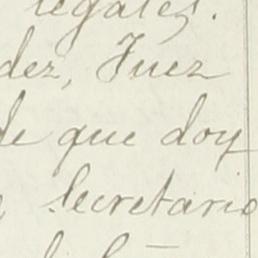 legales.
dez, Juez
de que doy
secretario